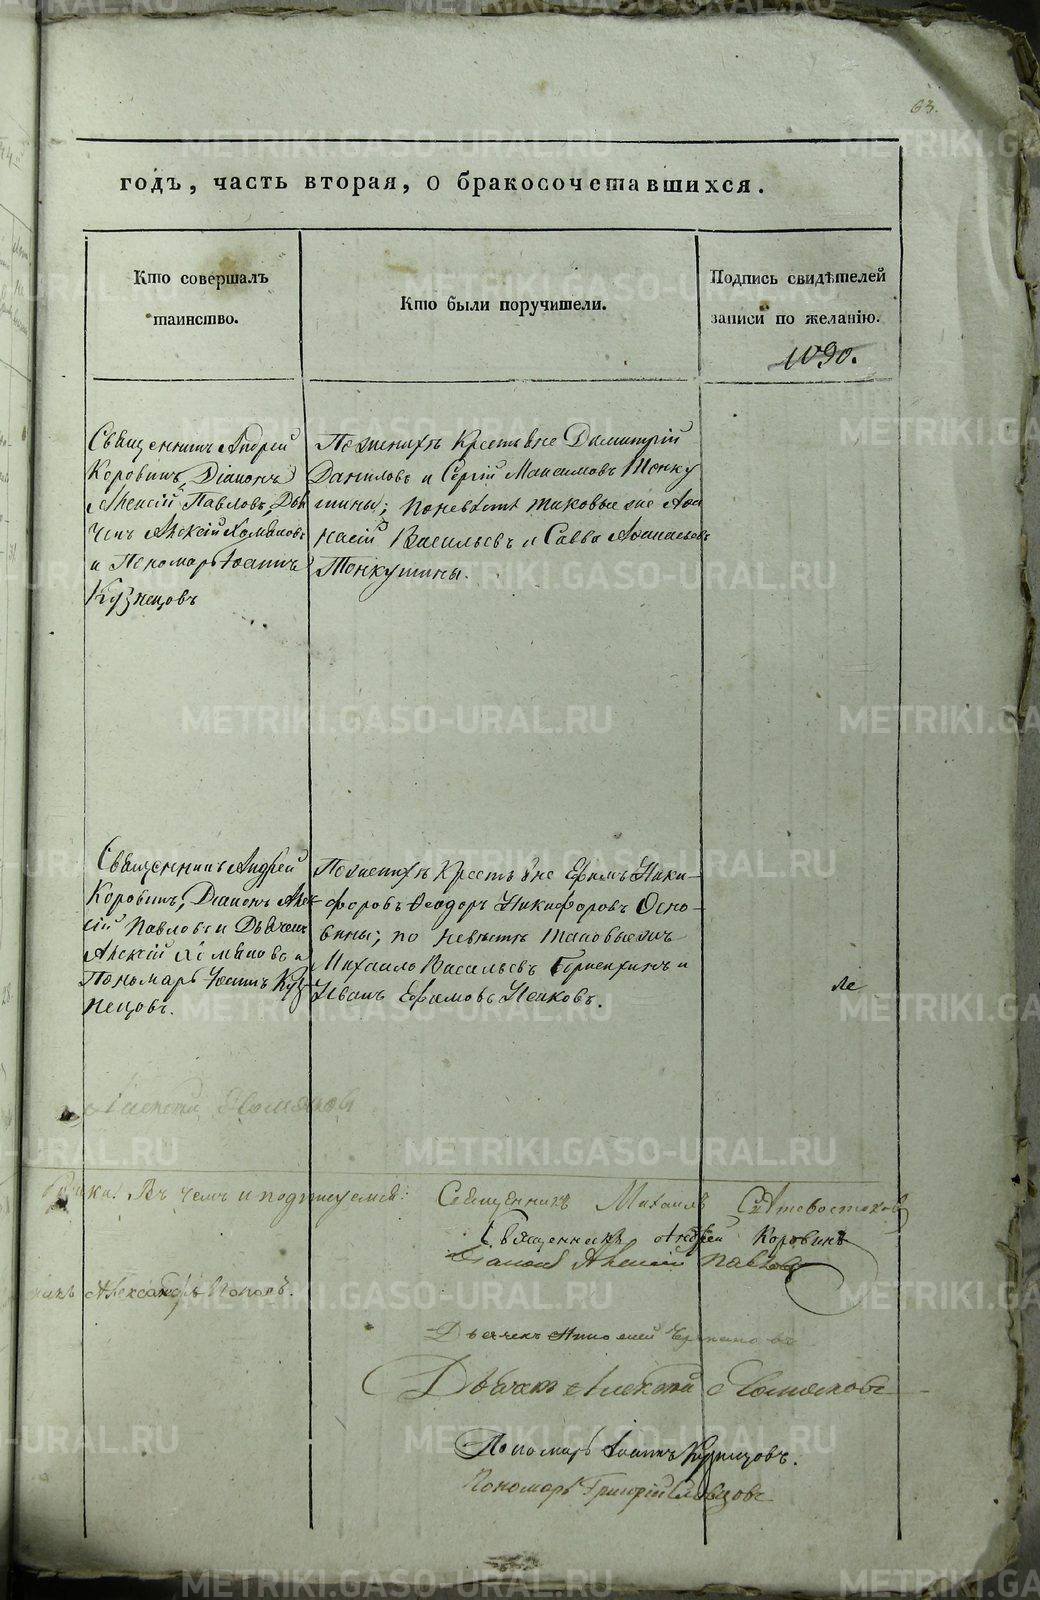 63.
годъ, часть вторая, о бракосочетавшихся.
Кто совершалъ
таинство.
Кто были поручители.
Подпись свидѣтелей
записи по желанію.
Священникъ Андрей
Коровинъ, Діаконъ
Алексій Павловъ, Дья
чекъ Алексій Хомяковъ
и Пономарь Іоаннъ
Кузнецовъ
По женихѣ Крестьяне Димитрій
Даниловъ и Сергій Максимовъ Тонку
шины; по невѣстѣ таковые же Аѳа
насій Васильевъ и Савва Аѳанасьевъ
Тонкушины.
Священникъ Андрей
Коровинъ, Діаконъ Алек
сій Павловъ и Дьячекъ
Алексій Хомяковъ и
Пономарь Іоаннъ Куз
нецовъ.
По женихѣ Крестьяне Ефимъ Ники-
форовъ Ѳеодоръ Никифоровъ
вины; по невѣстѣ таковые же
Михаило Васильевъ и
Иванъ Ефимовъ
Алексій Хомяковъ
Въ чемъ и подписуемся:
Священникъ Михаилъ
Священникъ Андрей Коровинъ
Діаконъ Алексій Павловъ
Александръ Поповъ.
Дьячекъ
Дьячекъ Алексій Хомяковъ
Пономарь Іоаннъ Кузнецовъ.
Пономарь Григорій
METRIKI.GASO-URAL.RU